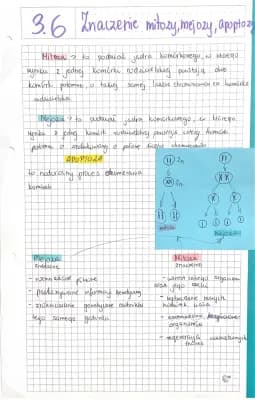 3.6 Znaczenie mitozy, mejozy, apoptozy
Mitoza → to podział jądra komórkowego, w którego
wyniku z jednej komórki rodzicielskiej powstają dwie
komórki potomne, o takiej samej liczbie chromosomów co komórka
rodzicielska
Mejoza → to podział jądra komórkowego, w którego
wyniku z jednej komórki rodzicielskiej powstają cztery komórki
potomne o zredukowanej o połowę liczbie chromosomów
APOPTOZA
to naturalny proces obumierania
komórek
2n
mitoza
mejoza
Mejoza
znaczenie
- rozmnażanie płciowe
- przekazywanie informacji genetycznej
- zróżnicowanie genetyczne osobników
tego samego gatunku
Mitoza
znaczenie
- wzrost całego organizmu
oraz jego części
organizmów
- regeneracja uszkodzonych
tkanek